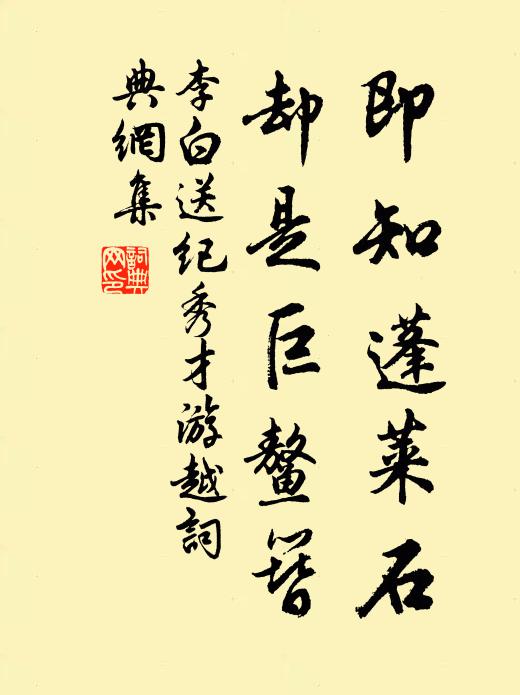 即知蓬莱石
却是巨鳌簪
李白送紀秀才游越詞
典網集
詞典
网印